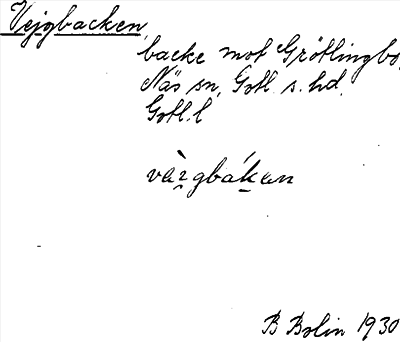 Vejgbacken,
backe mot Grötlingbo,
Näs sn, Gotl. s. hd.
Gotl. l
B Bolin 1930